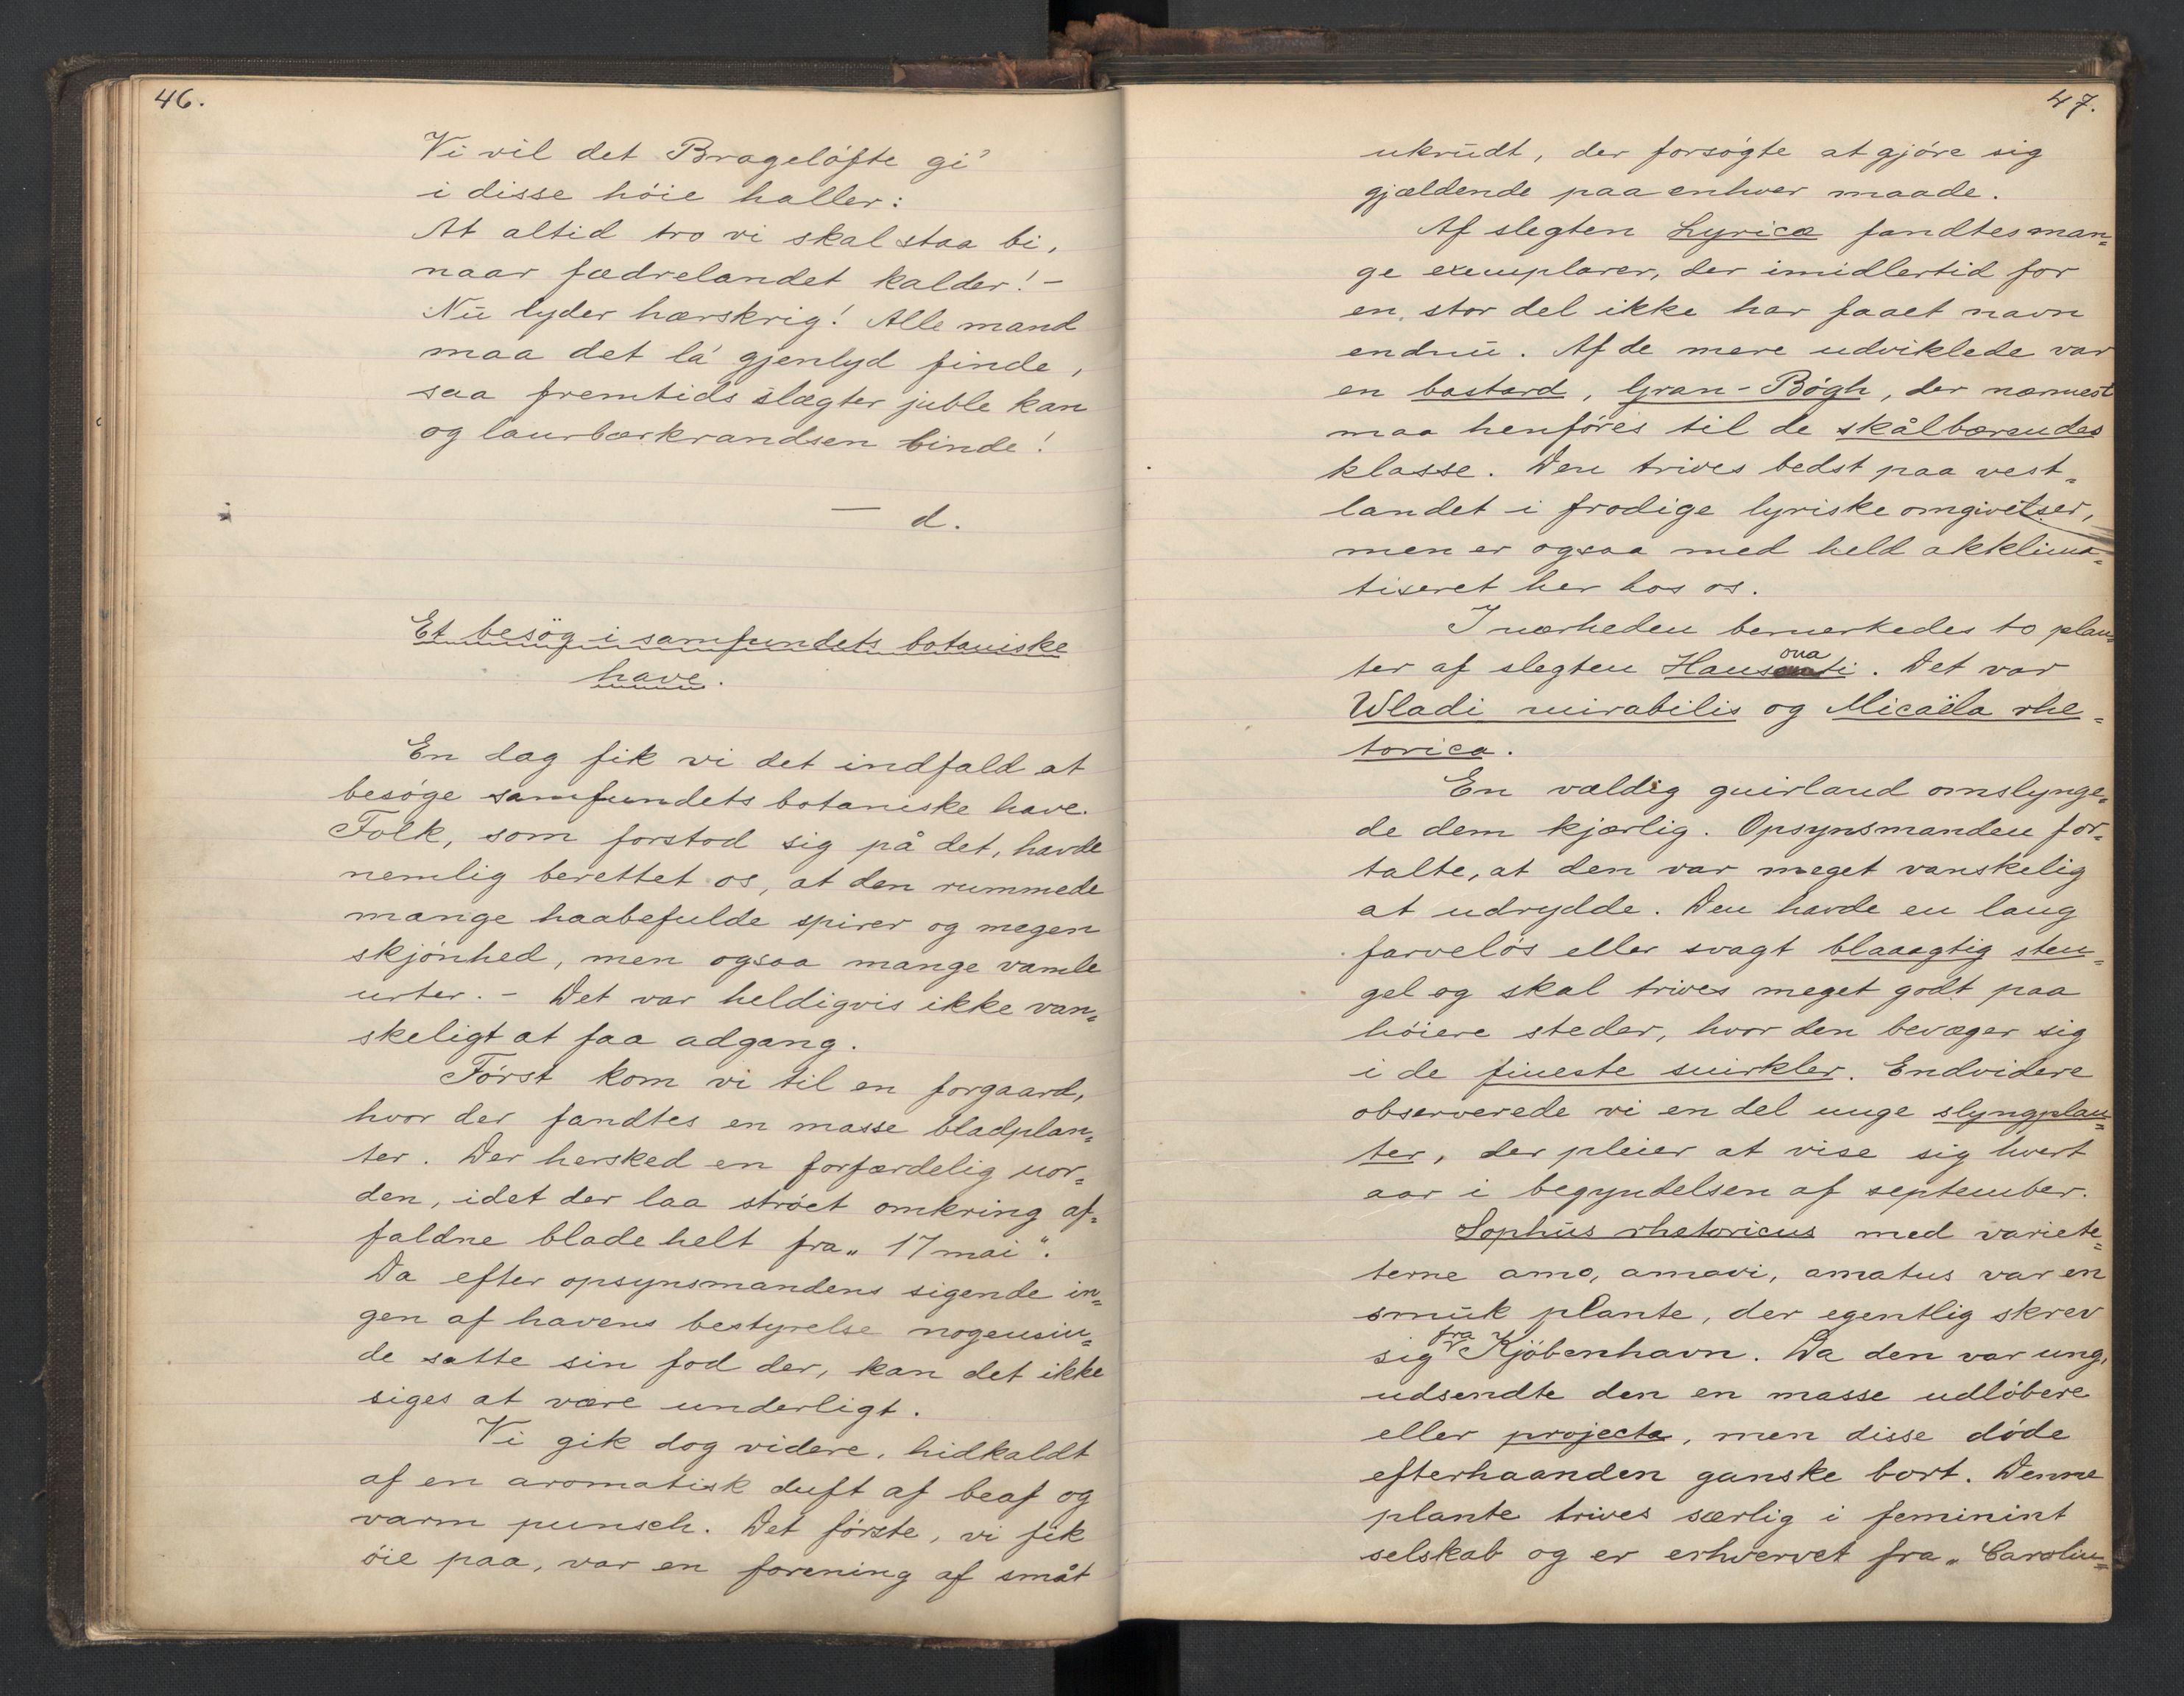 46.
Vi vil det Brageløfte gi'
i disse höie haller:
At altid tro vi skal staa bi,
naar fædrelandet kalder! -
Nu lyder hærskrig! Alle mand
maa det la' gjenlyd finde,
saa fremtids slægter juble kan
og laurbærkrandsen binde!
— d.
Et besög i samfundets botaniske
have.
En dag fik vi det indfald at
besöge samfundets botaniske have.
Folk, som forstod sig på det, havde
nemlig berettet os, at den rummede
mange haabefulde spirer og megen
skjönhed, men ogsaa mange vamle
urter. - Det var heldigvis ikke van=
skeligt at faa adgang.
Först kom vi til en forgaard,
hvor der fandtes en masse bladplan=
ter. Der hersked en forfærdelig uor=
den, idet der laa ströet omkring af=
faldne blade helt fra „17 mai".
Da efter opsynsmandens sigende in=
gen af havens bestyrelse nogensin=
de satte sin fod der, kan det ikke
siges at være underligt.
Vi gik dog videre, hidkaldt
af en aromatisk duft af beaf og
varm punsch. Det förste, vi fik
öie paa, var en forening af småt
47.
ukrudt, der forsögte at gjöre sig
gjældende paa enhver maade.
Af slegten Lyrica fandtes man=
ge exemplarer, der imidlertid for
en stor del ikke har faaet navn
endnu. Af de mere udviklede var
en bastard, Gran-Bögh, der nærmest
maa henföres til de skålbærendes
klasse. Den trives bedst paa vest=
landet i frodige lyriske omgivelser,
men er ogsaa med held akklima=
tiseret her hos os.
I nærheden bemærkedes to plan=
ter af slegten Hansonati. Det var
Wladi mirabilis og Micaëla rhe=
torica.
En vældig guirland omslynge=
de dem kjærlig. Opsynsmanden for=
talte, at den var meget vanskelig
at udrydde. Den havde en lang
farvelös eller svagt blaaagtig sten=
gel og skal trives meget godt paa
höiere steder, hvor den bevæger sig
i de fineste snirkler. Endvidere
observerede vi en del unge slyngplan=
ter, der pleier at vise sig hvert
aar i begyndelsen af september.
Sophus rhetoricus med variete=
terne amo, amavi, amatus var en
smuk plante, der egentlig skrev
sig fra Kjöbenhavn. Da den var ung,
udsendte den en masse udlöbere
eller projecta, men disse döde
efterhaanden ganske bort. Denne
plante trives særlig i feminint
selskab og er erhvervet fra „Carolin=